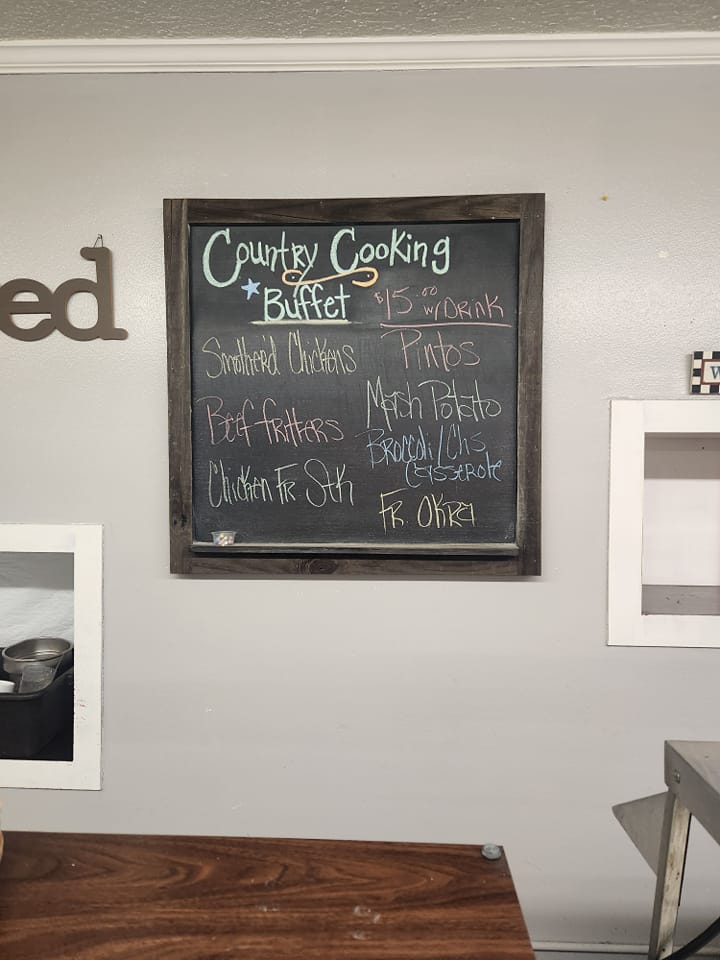 Country Cooking
Buffet
$15.00 w/ Drink
Smother'd Chickens
Beef fritters
Chicken Fr Stk
Pintos
Mash Potato
Broccoli/Chs
Casserole
Fr. Okra
ed
W